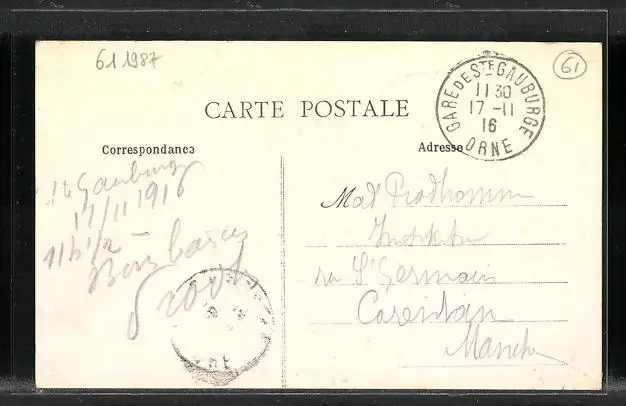 61 1987
61
GARE DE STE GAUBURGE
11 30
17 - 11
16
ORNE
CARTE POSTALE
Correspondance
Adresse
Ste Gauburge
17/11 1916
11h 1/2
Bons baisers
Mad Prodhomme
Institut
rue St Germain
Carentan
Manche